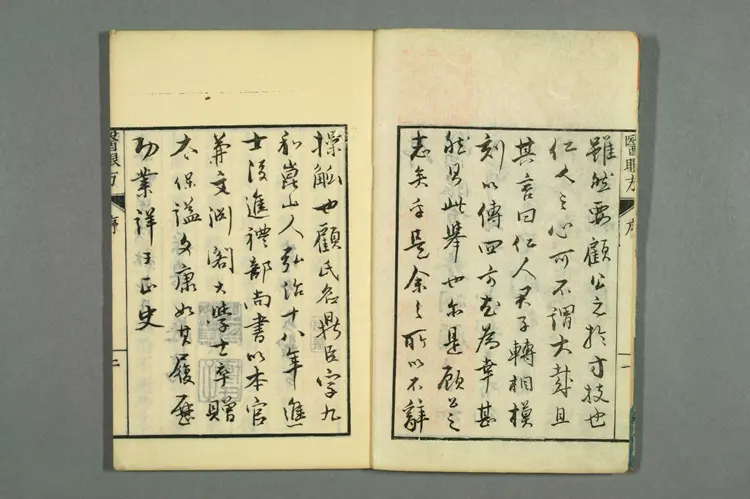 醫眼方 序 一
雖然要顧公之於方技也
仁人之心可不謂大哉且
其言曰仁人君子轉相模
刻以傳四方尤為幸甚
然則此舉也亦是顧公之
志矣乎是余之所以不辭
操觚也顧氏名鼎臣字九
和崑山人弘治十八年進
士後進禮部尚書以本官
兼文淵閣大學士卒贈
太保謚文康如其履歷
功業詳于正史
醫眼方 序 二